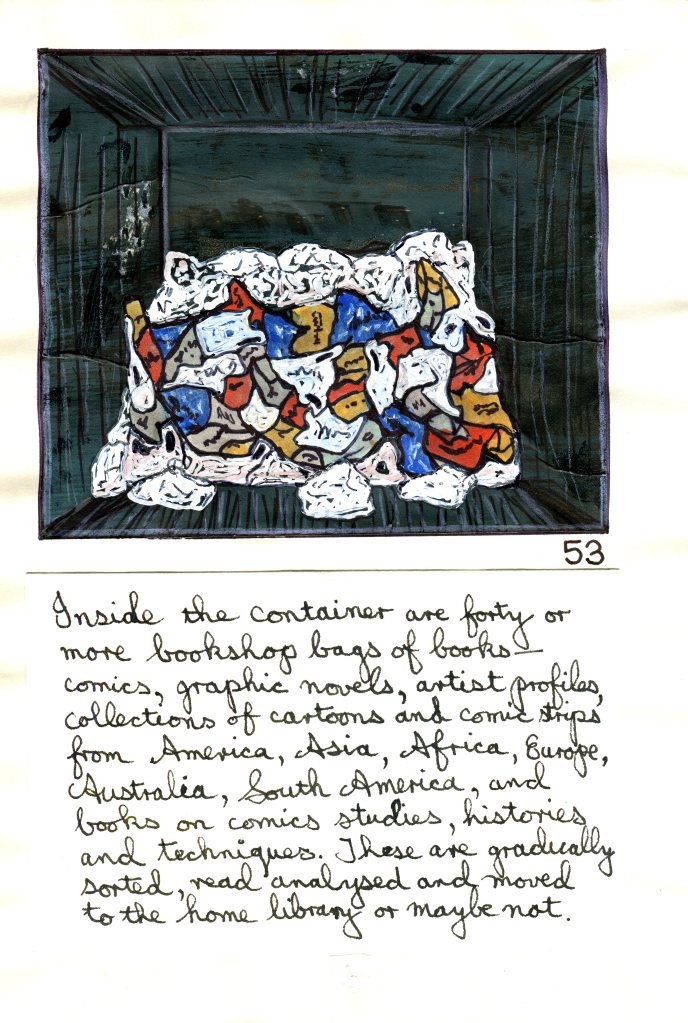 53
Inside the container are forty or
more bookshop bags of books—
comics, graphic novels, artist profiles,
collections of cartoons and comic strips
from America, Asia, Africa, Europe,
Australia, South America, and
books on comics studies, histories
and techniques. These are gradually
sorted, read analysed and moved
to the home library or maybe not.